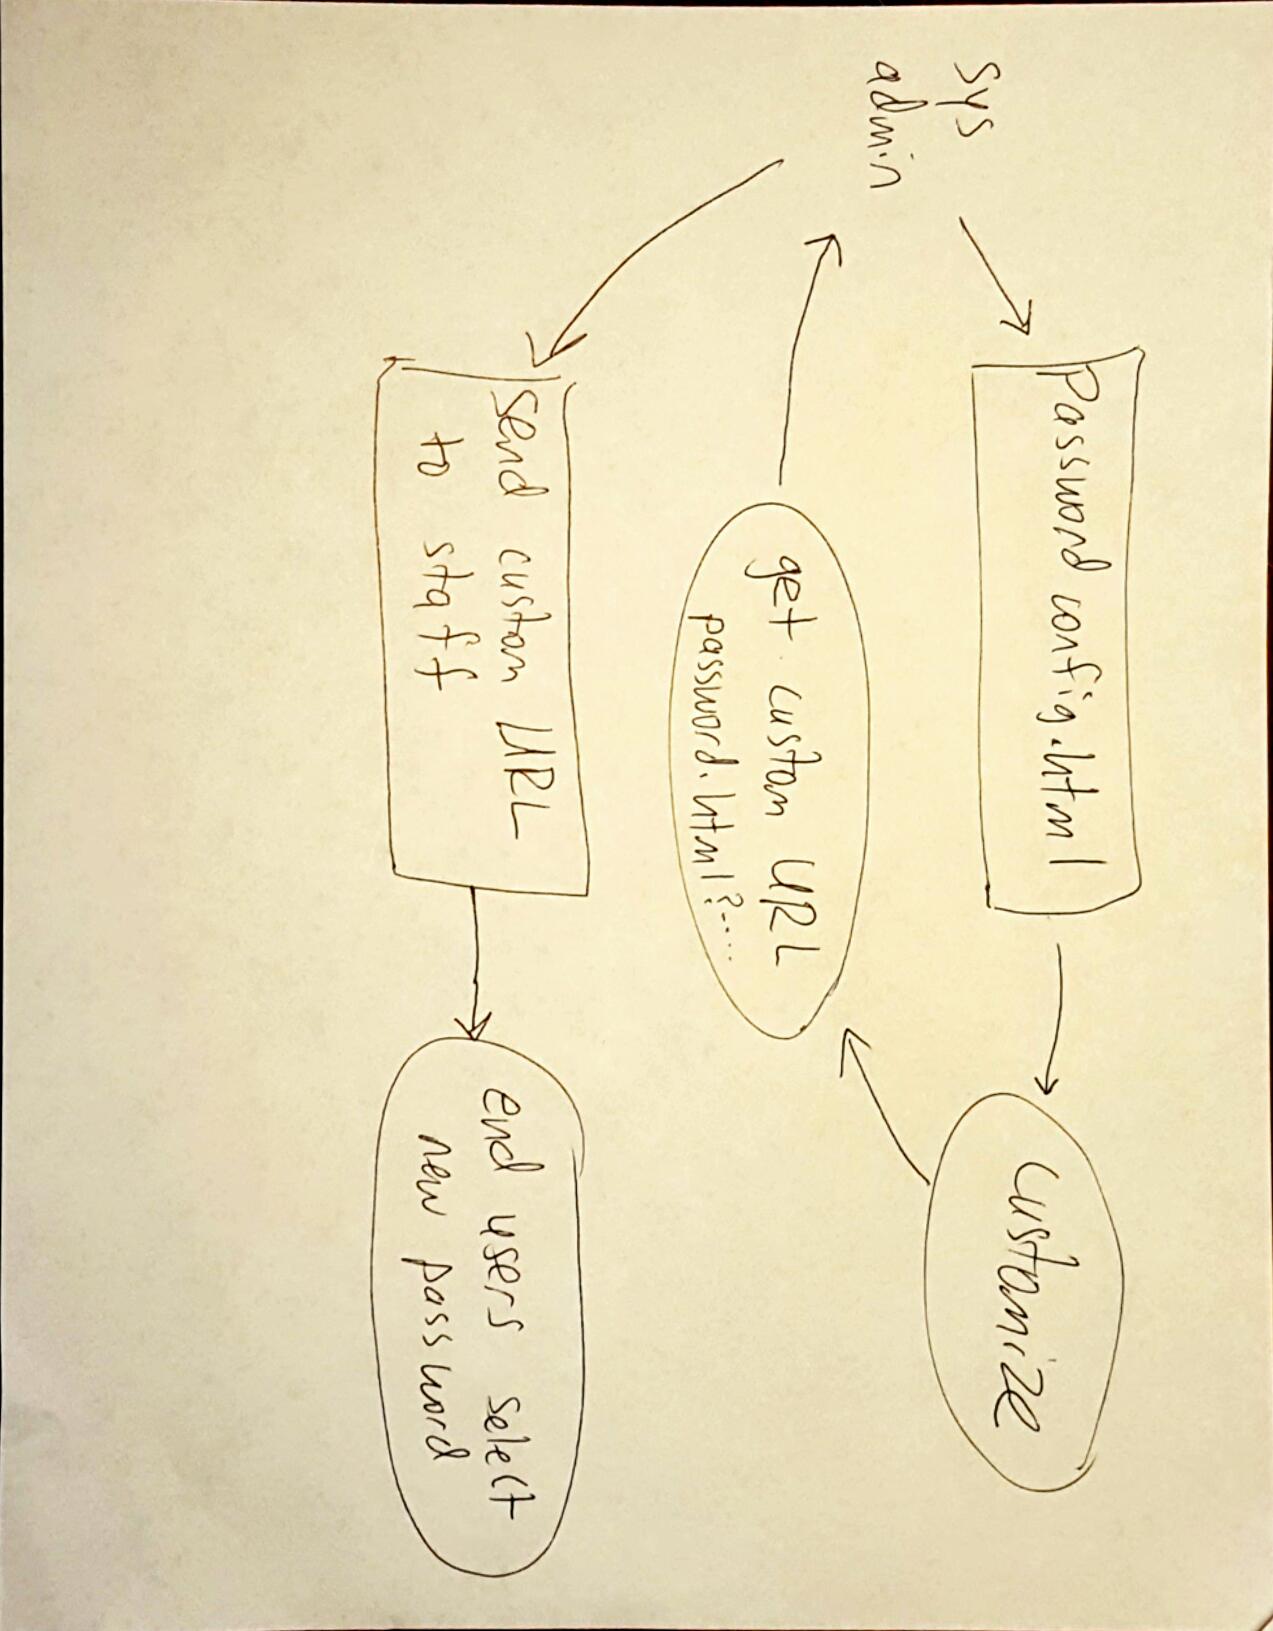 Password config.html
customize
sys
admin
get custom URL
password.html?-....
send custom URL
to staff
end users select
new password